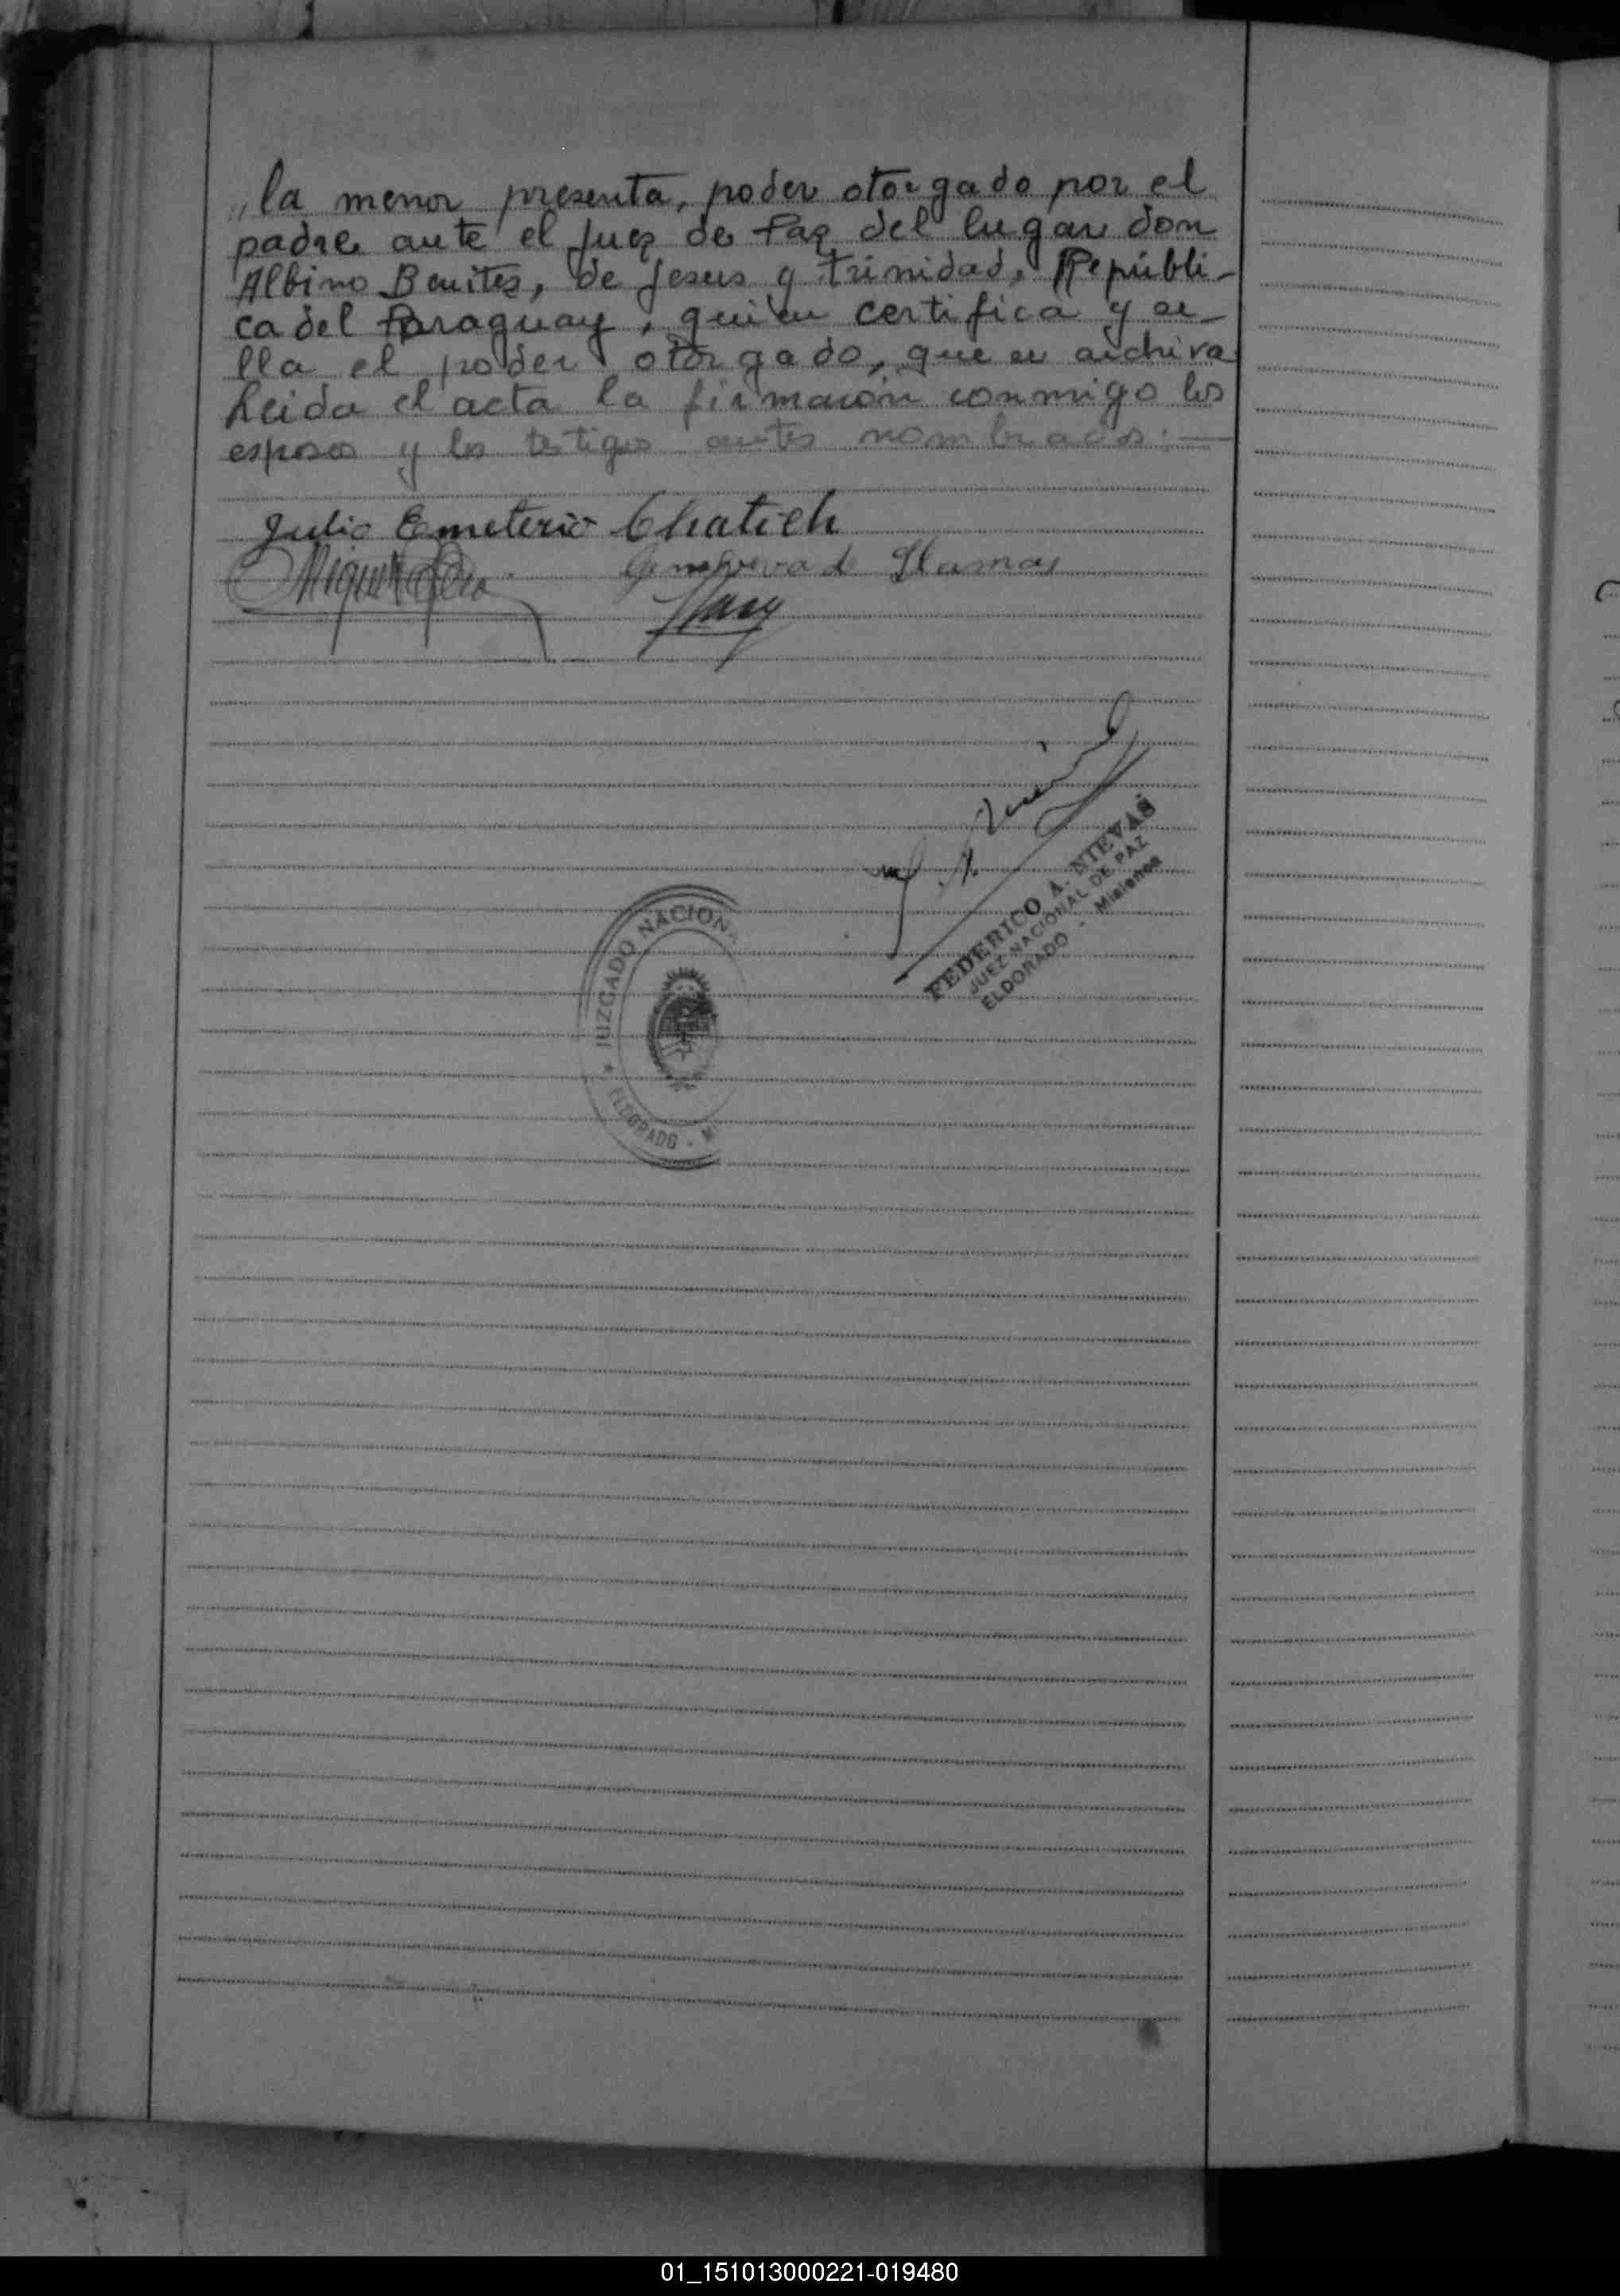 la menor presenta, poder otorgado por el
padre ante el Juez de Paz del lugar don
Albino Benitez, de Jesus y Trinidad, Repúbli-
ca del Paraguay, quien certifica y se-
lla el poder otorgado, que se archiva
Leida el acta la firmaron conmigo los
esposos y los testigos antes nombrados.—
Julio Emeterio Chatieh
Genoveva de Llamas
FEDERICO A. NIEVAS
JUEZ NACIONAL DE PAZ
ELDORADO - Misiones
JUZGADO NACIONA
ELDORADO - M
01_151013000221-019480